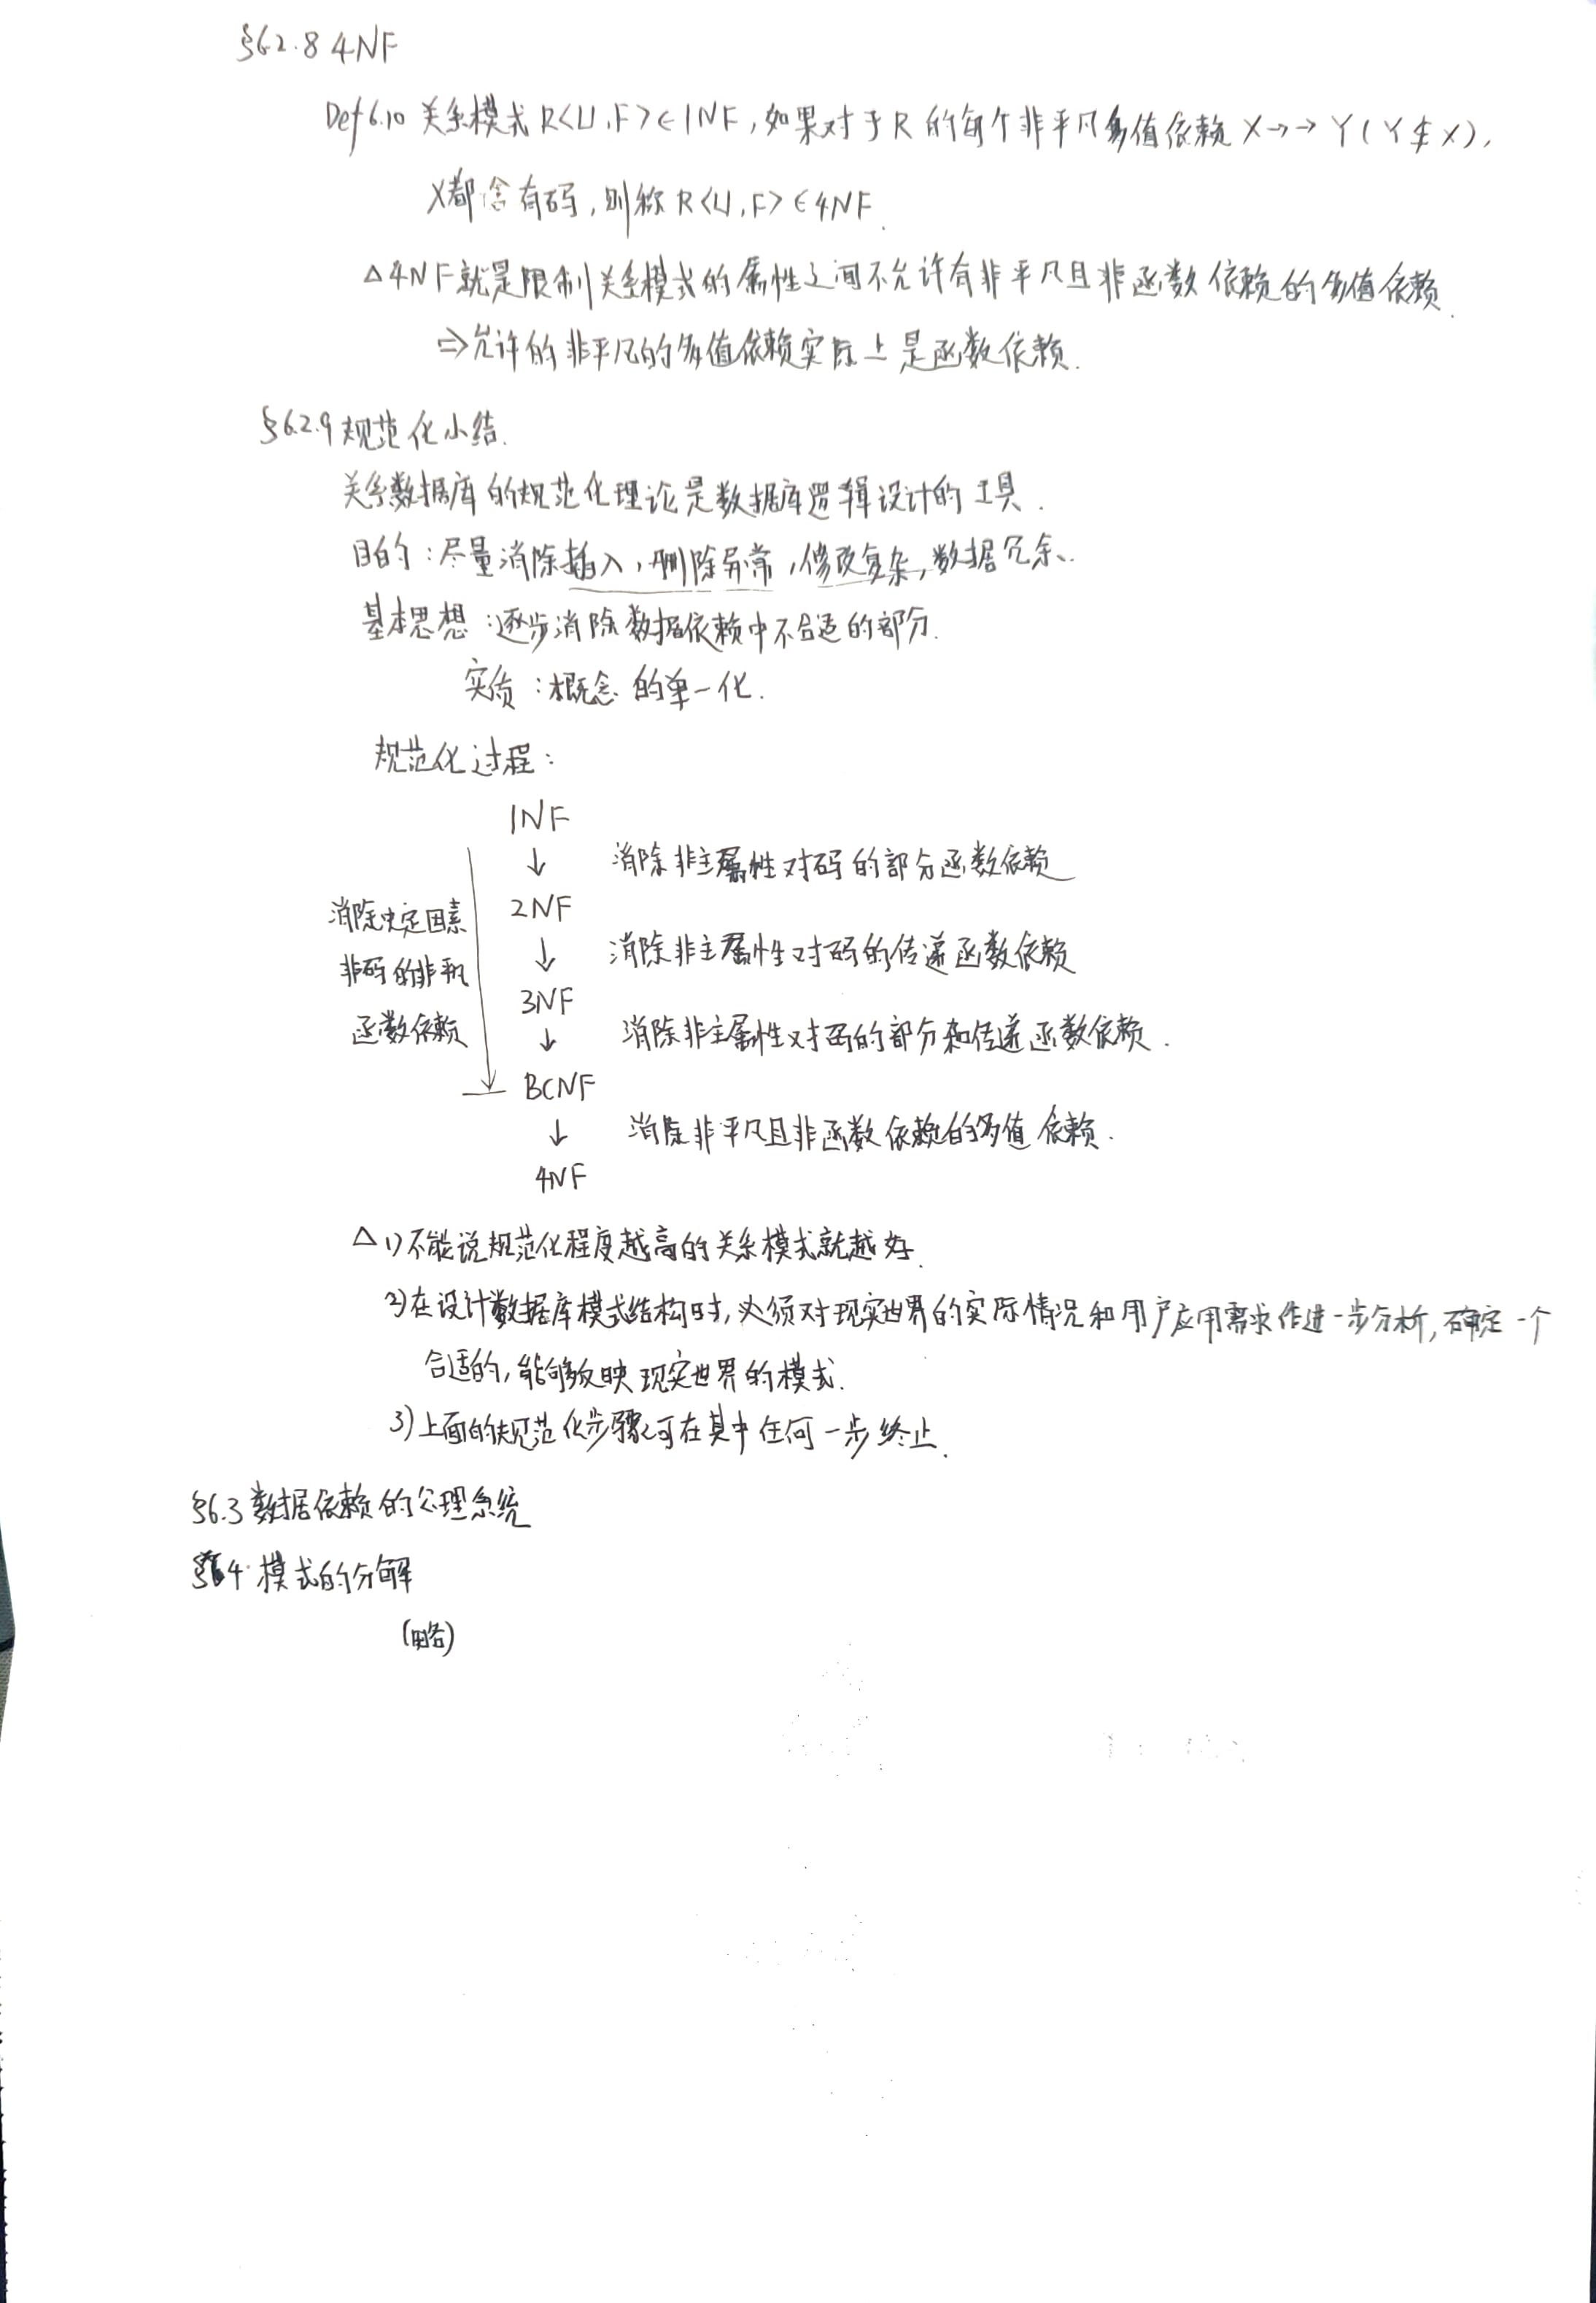 §6.2.8 4NF
Def 6.10 关系模式 R<U,F>∈1NF,如果对于R的每个非平凡多值依赖 X→→Y(Y⊈X),
X都含有码,则称 R<U,F>∈4NF.
△4NF就是限制关系模式的属性之间不允许有非平凡且非函数依赖的多值依赖.
⇒允许的非平凡的多值依赖实际上是函数依赖.
§6.2.9 规范化小结.
关系数据库的规范化理论是数据库逻辑设计的工具.
目的:尽量消除插入,删除异常,修改复杂,数据冗余.
基本思想:逐步消除数据依赖中不合适的部分.
实质:概念的单一化.
规范化过程:
1NF
↓ 消除非主属性对码的部分函数依赖
2NF
↓ 消除非主属性对码的传递函数依赖
3NF
↓ 消除非主属性对码的部分和传递函数依赖.
BCNF
↓ 消除非平凡且非函数依赖的多值依赖.
4NF
消除决定因素
非码的非平凡
函数依赖
△1)不能说规范化程度越高的关系模式就越好.
2)在设计数据库模式结构时,必须对现实世界的实际情况和用户应用需求作进一步分析,确定一个
合适的,能够反映现实世界的模式.
3)上面的规范化步骤可在其中任何一步终止.
§6.3 数据依赖的公理系统
§6.4 模式的分解
(略)